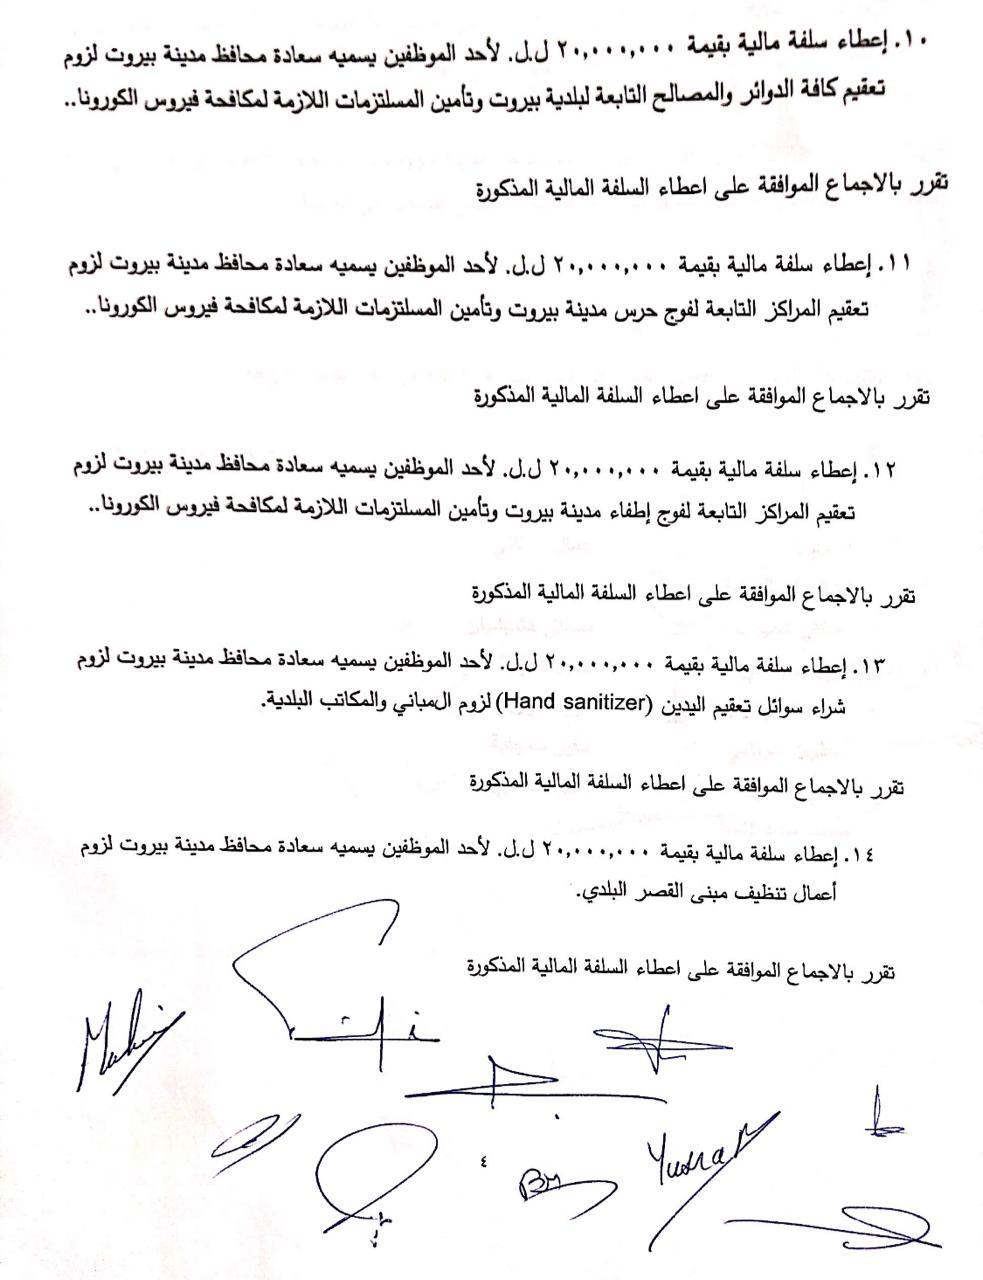 ١٠. إعطاء سلفة مالية بقيمة ٢٠,٠٠٠,٠٠٠ ل.ل. لأحد الموظفين يسميه سعادة محافظ مدينة بيروت لزوم
تعقيم كافة الدوائر والمصالح التابعة لبلدية بيروت وتأمين المسلتزمات اللازمة لمكافحة فيروس الكورونا..
تقرر بالاجماع الموافقة على اعطاء السلفة المالية المذكورة
١١. إعطاء سلفة مالية بقيمة ٢٠,٠٠٠,٠٠٠ ل.ل. لأحد الموظفين يسميه سعادة محافظ مدينة بيروت لزوم
تعقيم المراكز التابعة لفوج حرس مدينة بيروت وتأمين المسلتزمات اللازمة لمكافحة فيروس الكورونا..
تقرر بالاجماع الموافقة على اعطاء السلفة المالية المذكورة
١٢. إعطاء سلفة مالية بقيمة ٢٠,٠٠٠,٠٠٠ ل.ل. لأحد الموظفين يسميه سعادة محافظ مدينة بيروت لزوم
تعقيم المراكز التابعة لفوج إطفاء مدينة بيروت وتأمين المسلتزمات اللازمة لمكافحة فيروس الكورونا..
تقرر بالاجماع الموافقة على اعطاء السلفة المالية المذكورة
١٣. إعطاء سلفة مالية بقيمة ٢٠,٠٠٠,٠٠٠ ل.ل. لأحد الموظفين يسميه سعادة محافظ مدينة بيروت لزوم
شراء سوائل تعقيم اليدين (Hand sanitizer) لزوم المباني والمكاتب البلدية.
تقرر بالاجماع الموافقة على اعطاء السلفة المالية المذكورة
١٤. إعطاء سلفة مالية بقيمة ٢٠,٠٠٠,٠٠٠ ل.ل. لأحد الموظفين يسميه سعادة محافظ مدينة بيروت لزوم
أعمال تنظيف مبنى القصر البلدي.
تقرر بالاجماع الموافقة على اعطاء السلفة المالية المذكورة
٤